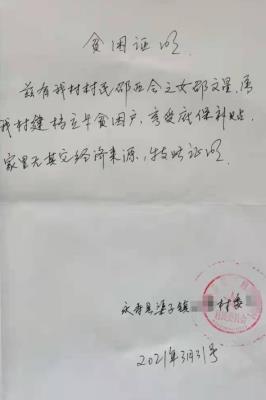 贫困证明
兹有我村村民邵西合之女邵文星,属
我村建档立卡贫困户,享受低保补贴,
家里无其它经济来源,特此证明.
永寿县渠子镇 村委
2021年3月31号